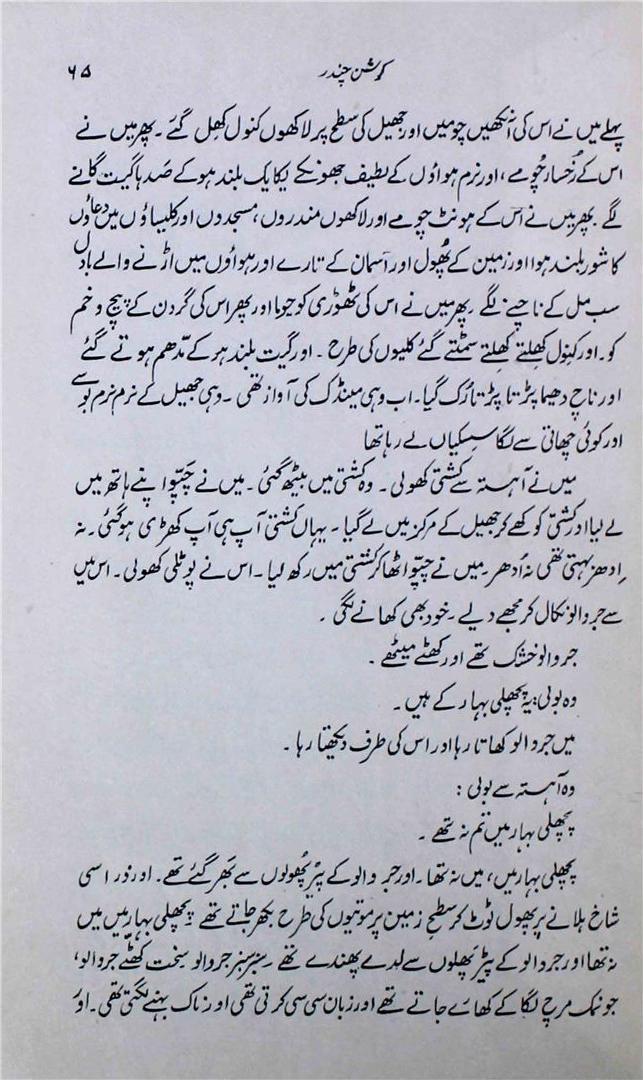 ۶۵
کرشن چندر
پہلے میں نے اس کی آنکھیں چومیں اور جھیل کی سطح پر لاکھوں کنول کھل گئے۔ پھر میں نے
اس کے رُخسار چُومے، اور نرم ہواؤں کے لطیف جھونکے یکایک بلند ہو کے صَدہا گیت گانے
لگے۔ پھر میں نے اُس کے ہونٹ چومے اور لاکھوں مندروں، مسجدوں اور کلیساؤں میں دعاؤں
کا شور بلند ہوا اور زمین کے پُھول اور آسمان کے تارے اور ہواؤں میں اڑنے والے بادل
سب مل کے ناچنے لگے۔ پھر میں نے اس کی ٹھوڑی کو چوما اور پھر اس کی گردن کے پیچ و خم
کو۔ اور کنول کھِلتے کھِلتے سمٹتے گئے کلیوں کی طرح۔ اور گیت بلند ہو کے مدّھم ہوتے گئے
اور ناچ دھیما پڑتا پڑتا رُک گیا۔ اب وہی مینڈک کی آواز تھی۔ وہی جھیل کے نرم نرم بوسے
اور کوئی چھاتی سے لگا سسکیاں لے رہا تھا
میں نے آہستہ سے کشتی کھولی۔ وہ کشتی میں بیٹھ گئی۔ میں نے چپّو اپنے ہاتھ میں
لے لیا اور کشتی کو کھے کر جھیل کے مرکز میں لے گیا۔ یہاں کشتی آپ ہی آپ کھڑی ہو گئی۔ نہ
اِدھر بہتی تھی نہ اُدھر۔ میں نے چپّو اٹھا کر کشتی میں رکھ لیا۔ اس نے پوٹلی کھولی۔ اس میں
سے جردالو نکال کر مجھے دیے۔ خود بھی کھانے لگی۔
جردالو خشک تھے اور کھٹے میٹھے۔
وہ بولی: یہ پچھلی بہار کے ہیں۔
میں جردالو کھاتا رہا اور اس کی طرف دیکھتا رہا۔
وہ آہستہ سے بولی:
پچھلی بہار میں تم نہ تھے۔
پچھلی بہار میں، میں نہ تھا۔ اور جردالو کے پیڑ پُھولوں سے بَھر گئے تھے۔ اور ذرا سی
شاخ ہلانے پر پھول ٹوٹ کر سطح زمین پر موتیوں کی طرح بکھر جاتے تھے۔ پچھلی بہار میں میں
نہ تھا اور جردالو کے پیڑ پھلوں سے لدے پھندے تھے۔ سبز سبز جردالو سخت کھٹے جردالو،
جو نمک مرچ لگا کے کھائے جاتے تھے اور زبان سی سی کرتی تھی اور ناک بہنے لگتی تھی۔ اور